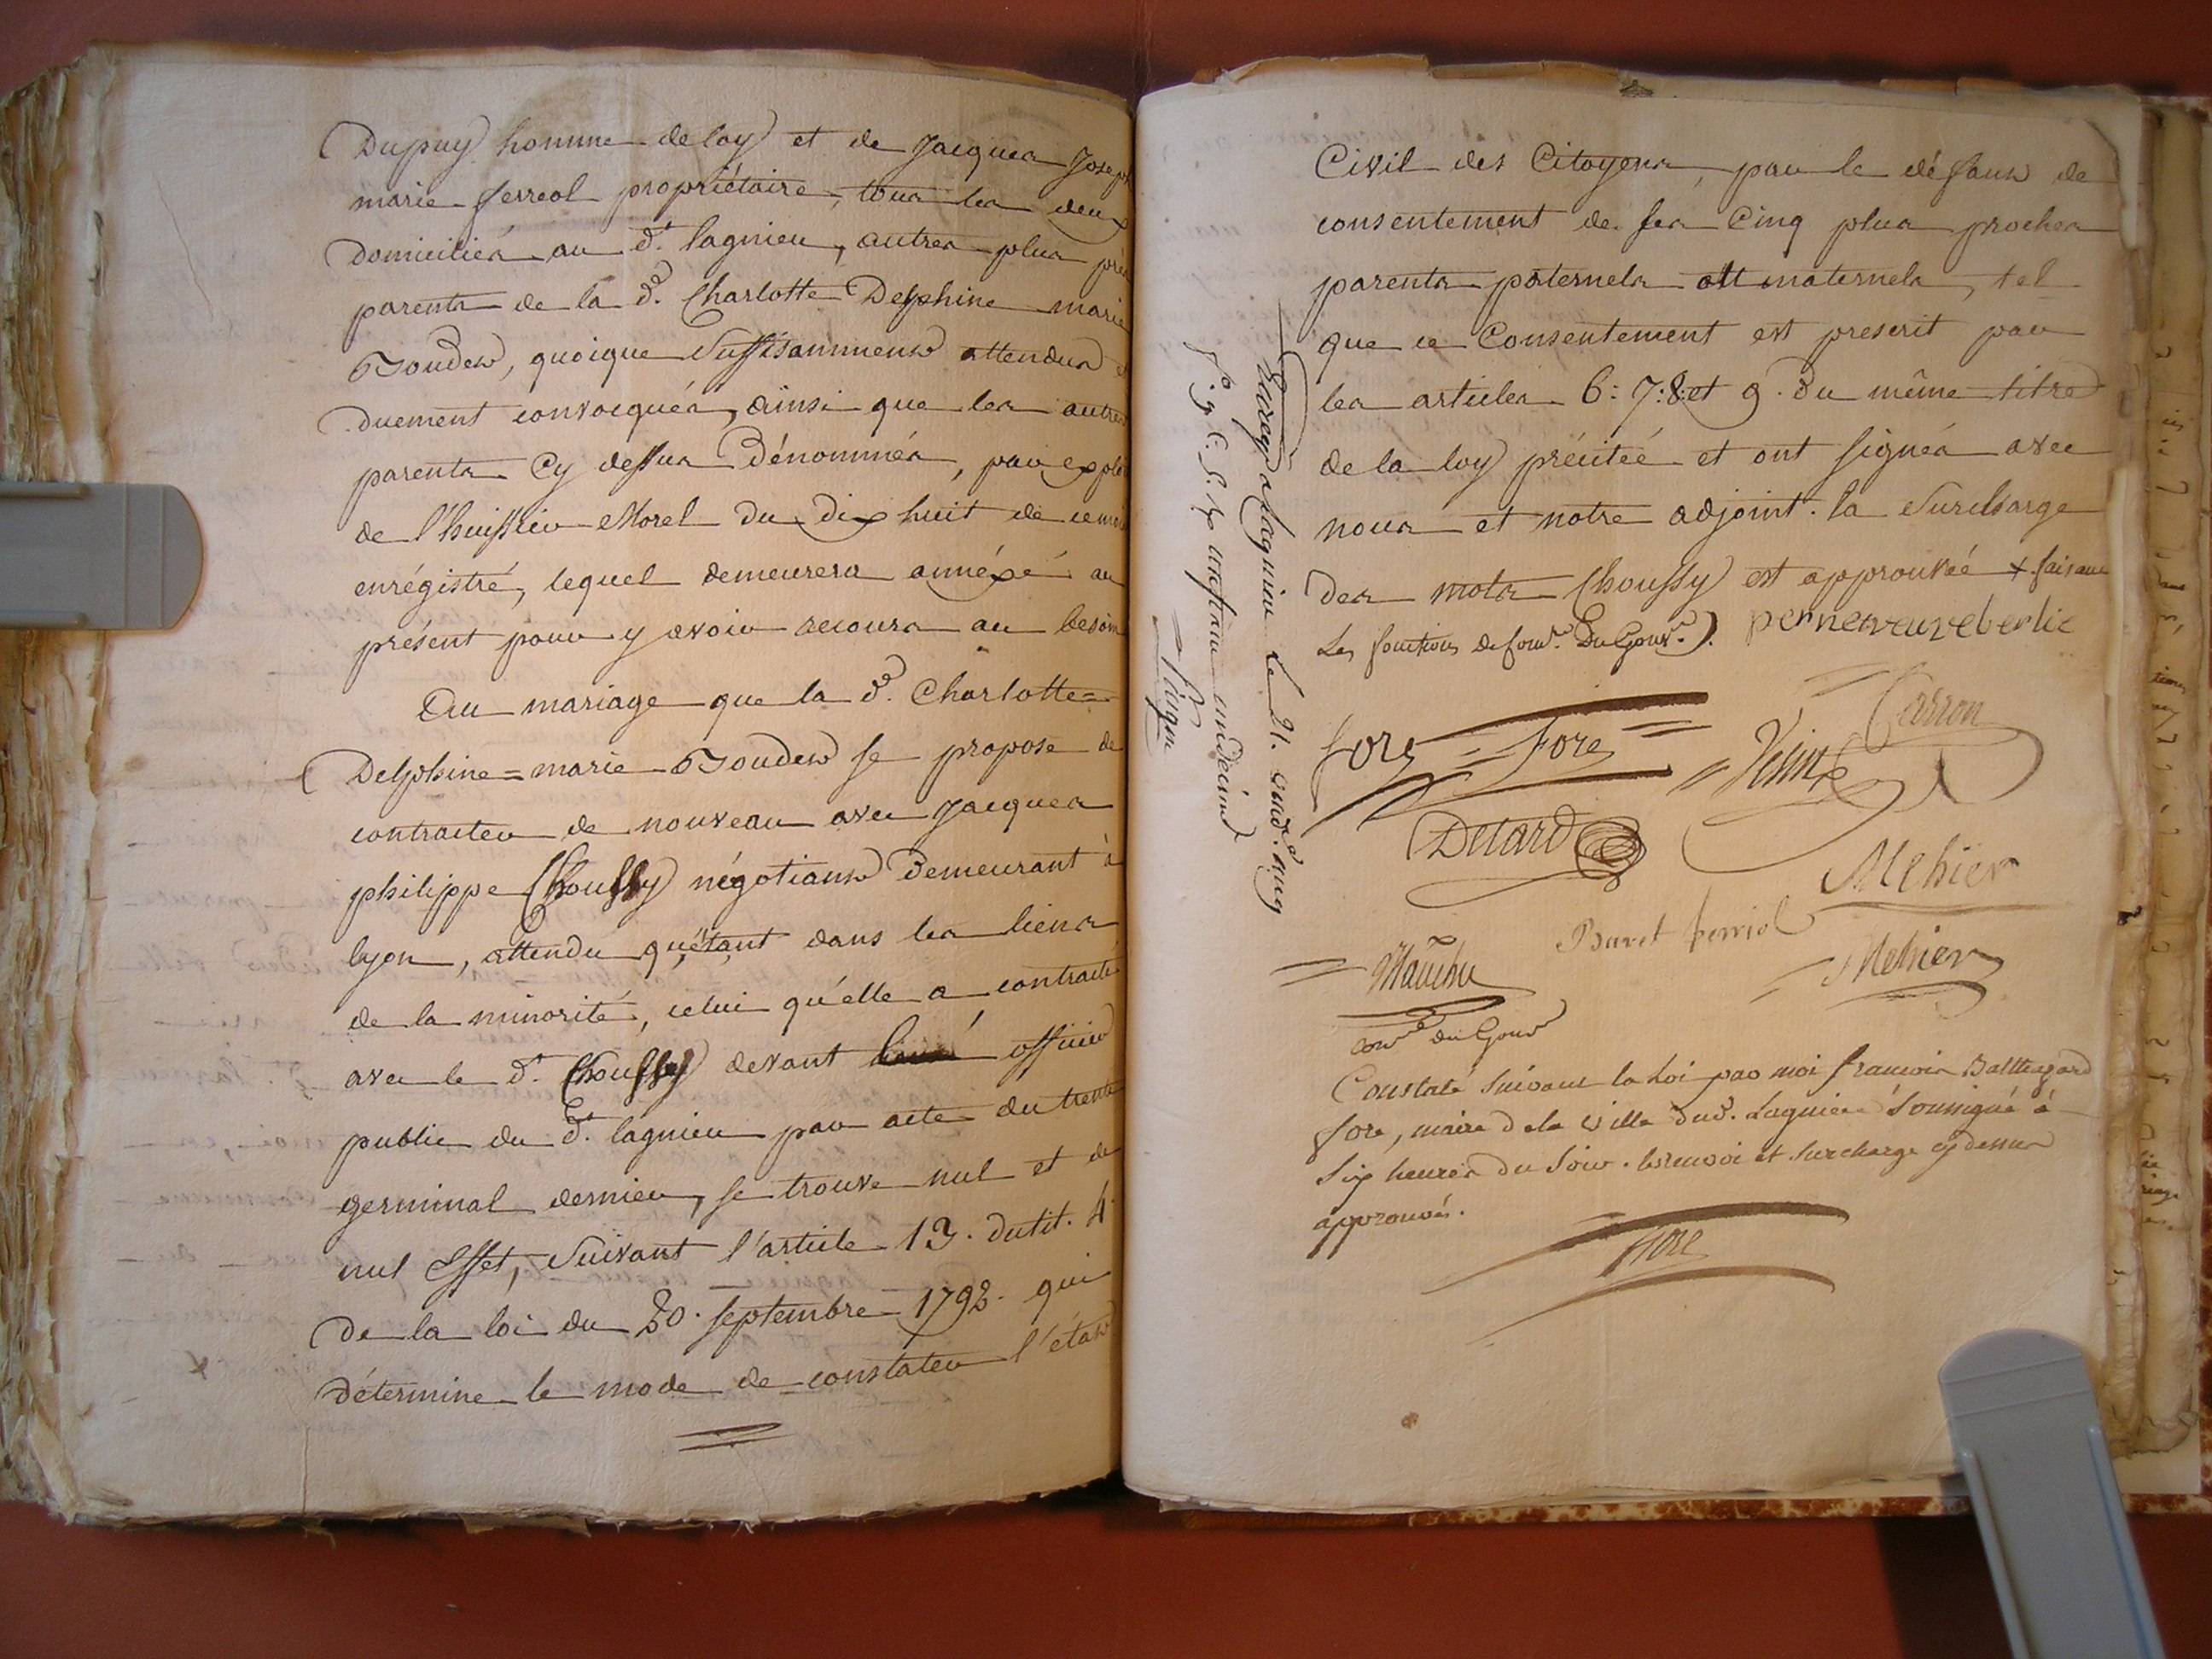 Dupuy homme de loy et de Jacques Joseph
marie ferreol propriétaire, tous les deux
domiciliés au dt. lagnieu, autres plus près
parents de la de. Charlotte Delphine marie
Boudet, quoique suffisamment attendus et
duement convocqués, ainsi que les autres
parents cy dessus dénommés, par exploit
de l'huissier Morel du dix huit de ce mois
enrégistré, lequel demeurera annéxé au
présent pour y avoir recours au besoin
Au mariage que la de. Charlotte=
Delphine=marie Boudet se propose de
contracter de nouveau avec Jacques
philippe Choussy négotiant demeurant à
lyon, attendu qu'étant dans les liens
de la minorité, celui qu'elle a contracté
avec le dt. Choussy devant officier
public du dt. lagnieu par acte du trente
germinal dernier, se trouve nul et de
nul effet, suivant l'article 13. du tit. 4.
de la loi du 20. septembre 1792. qui
détermine le mode de constater l'état
Civil des Citoyens, par le défaut de
consentement de ses Cinq plus proches
parents paternels ou maternels, tel
que ce Consentement est prescrit par
les articles 6: 7: 8: et 9. du même titre
de la loy précitée et ont signés avec
nous et notre adjoint. la surcharge
des mots Choussy est approuvée + faisant
Les fonctions de Com.re Du Gouv.t).
Fore = Fore
Carron
Detard
Mehier
Buret ferriol
Mehier
Com.re du Gouv.t
Constaté suivant la Loi par moi françois Balthazard
fore, maire de la ville dud. Lagnieu soussigné à
six heures du soir. les renvoi et surcharge cy dessus
approuvés.
Fore
Enreg.é a Lagnieu le 21. vend.re cinq
f.o 9 C. 5. Rx un franc un décime